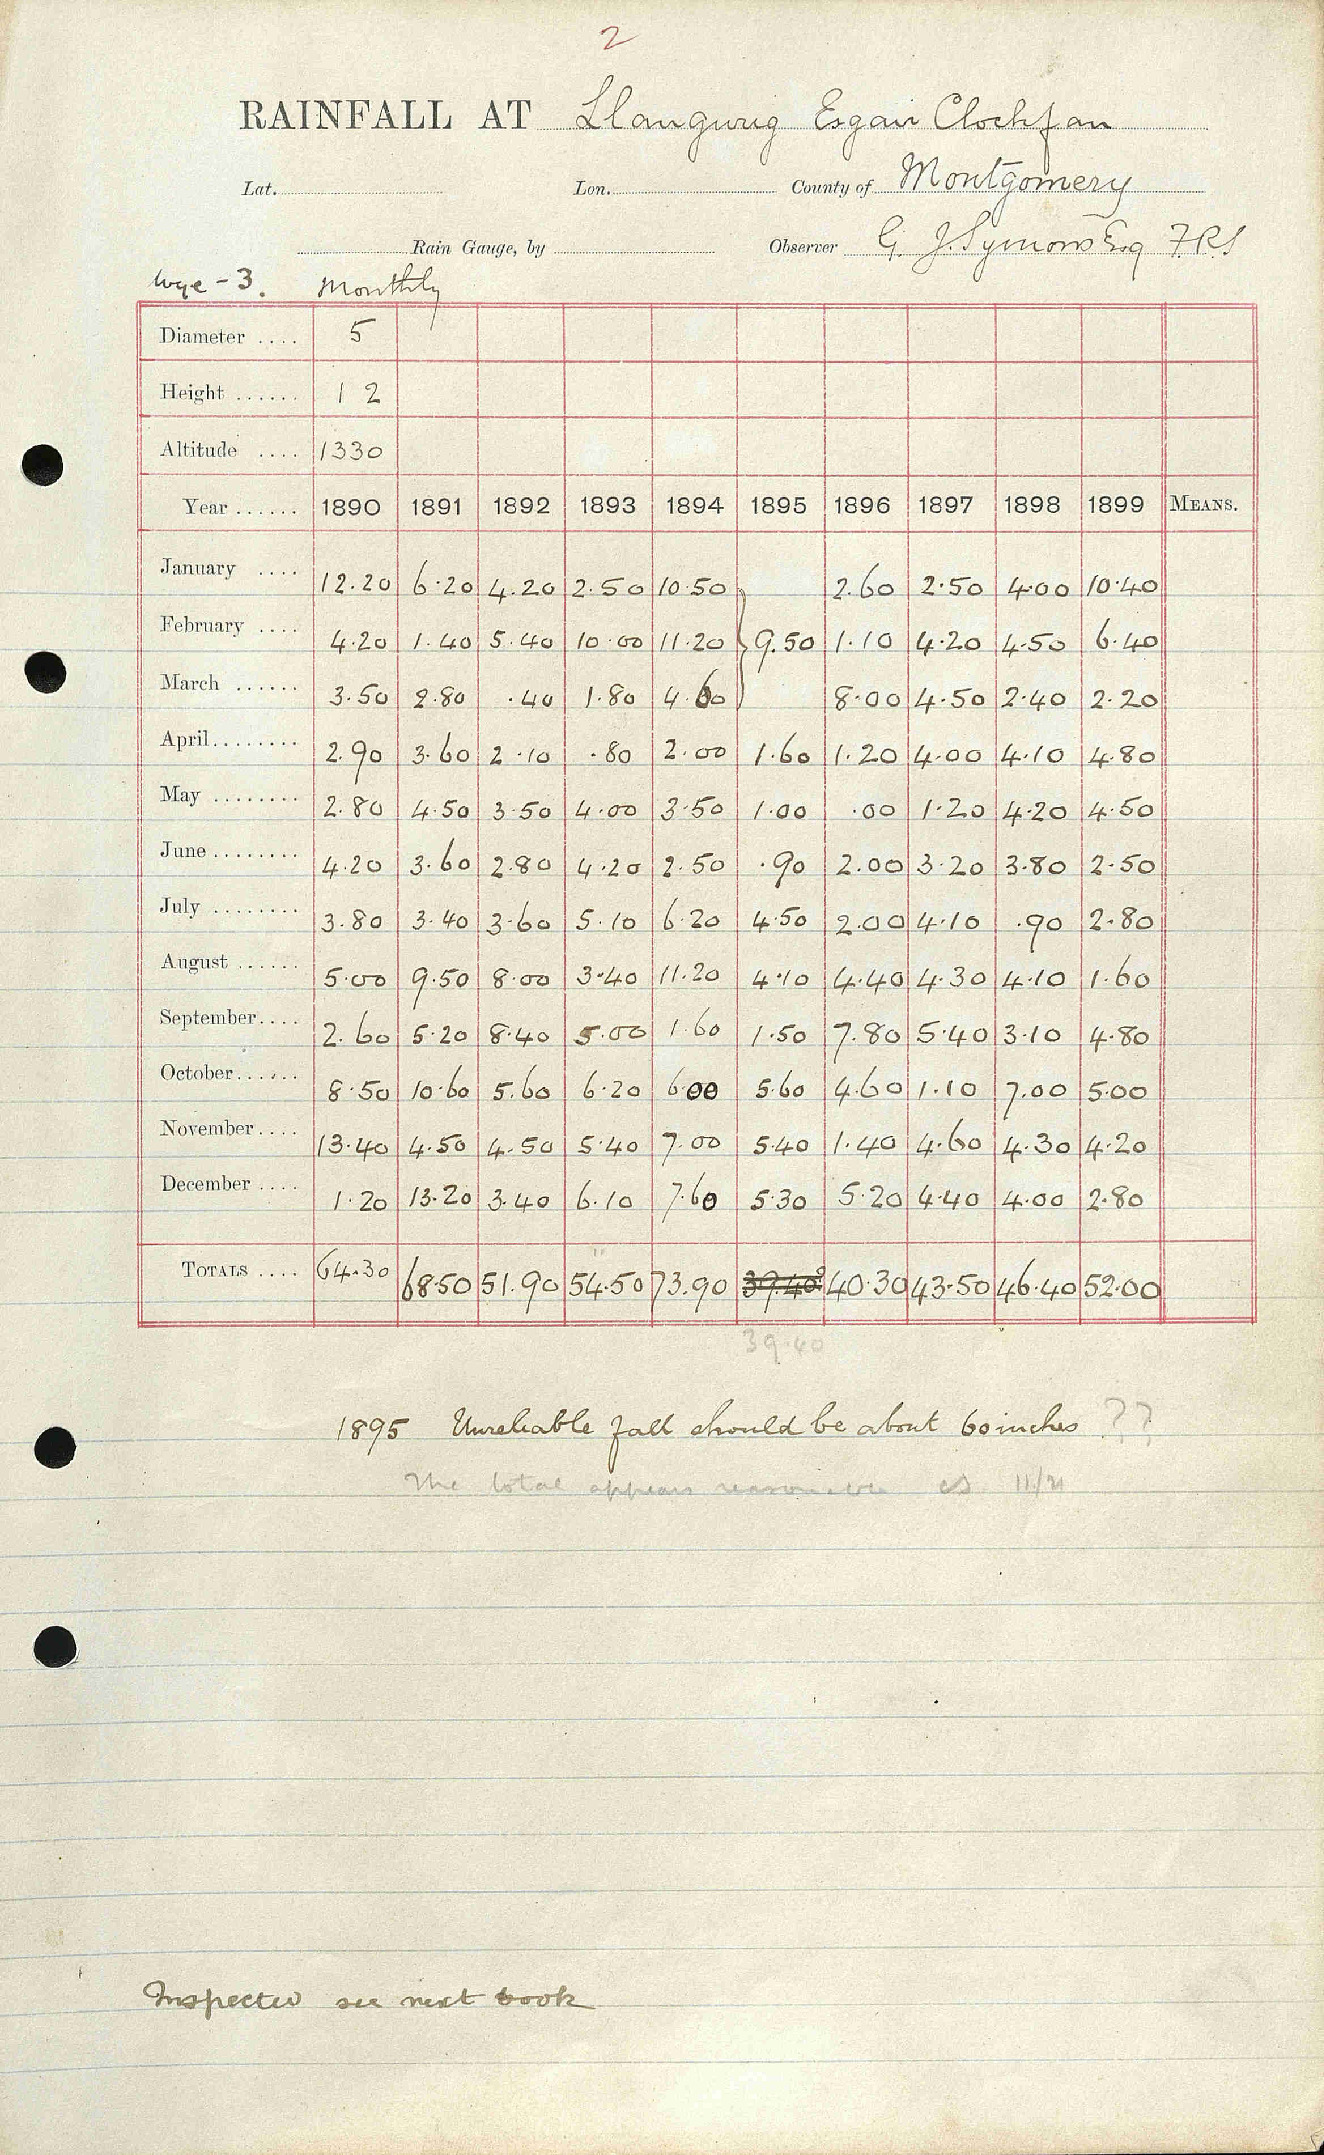 2
RAINFALL AT Llangurig Esgair Clochfan
Lat. Lon. County of Montgomery
Rain Gauge, by Observer G. J. Symons Esq F.R.S
Wye - 3. Monthly
Diameter .... 5
Height ...... 12
Altitude .... 1330
Year ...... 1890 1891 1892 1893 1894 1895 1896 1897 1898 1899 MEANS.
January .... 12.20 6.20 4.20 2.50 10.50 2.60 2.50 4.00 10.40
February .... 4.20 1.40 5.40 10.00 11.20 9.50 1.10 4.20 4.50 6.40
March ...... 3.50 2.80 .40 1.80 4.60 8.00 4.50 2.40 2.20
April........ 2.90 3.60 2.10 .80 2.00 1.60 1.20 4.00 4.10 4.80
May ........ 2.80 4.50 3.50 4.00 3.50 1.00 .00 1.20 4.20 4.50
June ........ 4.20 3.60 2.80 4.20 2.50 .90 2.00 3.20 3.80 2.50
July ........ 3.80 3.40 3.60 5.10 6.20 4.50 2.00 4.10 .90 2.80
August ...... 5.00 9.50 8.00 3.40 11.20 4.10 4.40 4.30 4.10 1.60
September.... 2.60 5.20 8.40 5.00 1.60 1.50 7.80 5.40 3.10 4.80
October...... 8.50 10.60 5.60 6.20 6.00 5.60 4.60 1.10 7.00 5.00
November.... 13.40 4.50 4.50 5.40 7.00 5.40 1.40 4.60 4.30 4.20
December .... 1.20 13.20 3.40 6.10 7.60 5.30 5.20 4.40 4.00 2.80
TOTALS .... 64.30 68.50 51.90 54.50 73.90 39.40? 40.30 43.50 46.40 52.00
39.40
1895 Unreliable fall should be about 60 inches ??
The total appears reasonable 11/21
Inspected see next book